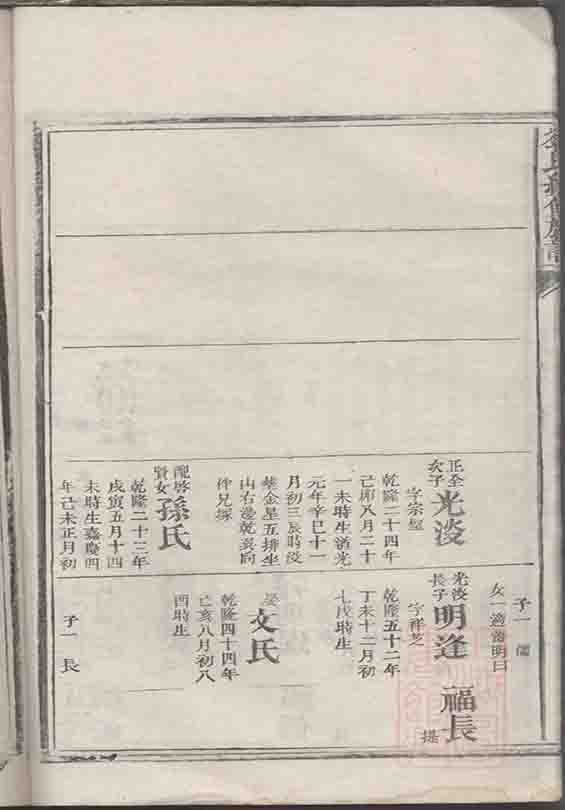 氏
族
正全
次子
光淡
字宗聖
乾隆二十四年
己卯八月二十
一未時生道光
元年辛巳十一
月初三辰時沒
葬金星五排坐
山右邊乾巽向
伴兄塚
配啓
賢女
孫氏
乾隆二十三年
戊寅五月十四
未時生嘉慶四
年己未正月初
子一 儒
女一適 明日
福長
提
光淡
長子
明逢
字祥芝
乾隆五十二年
丁未十二月初
七戌時生
娶
文氏
乾隆四十四年
己亥八月初八
酉時生
子一 長